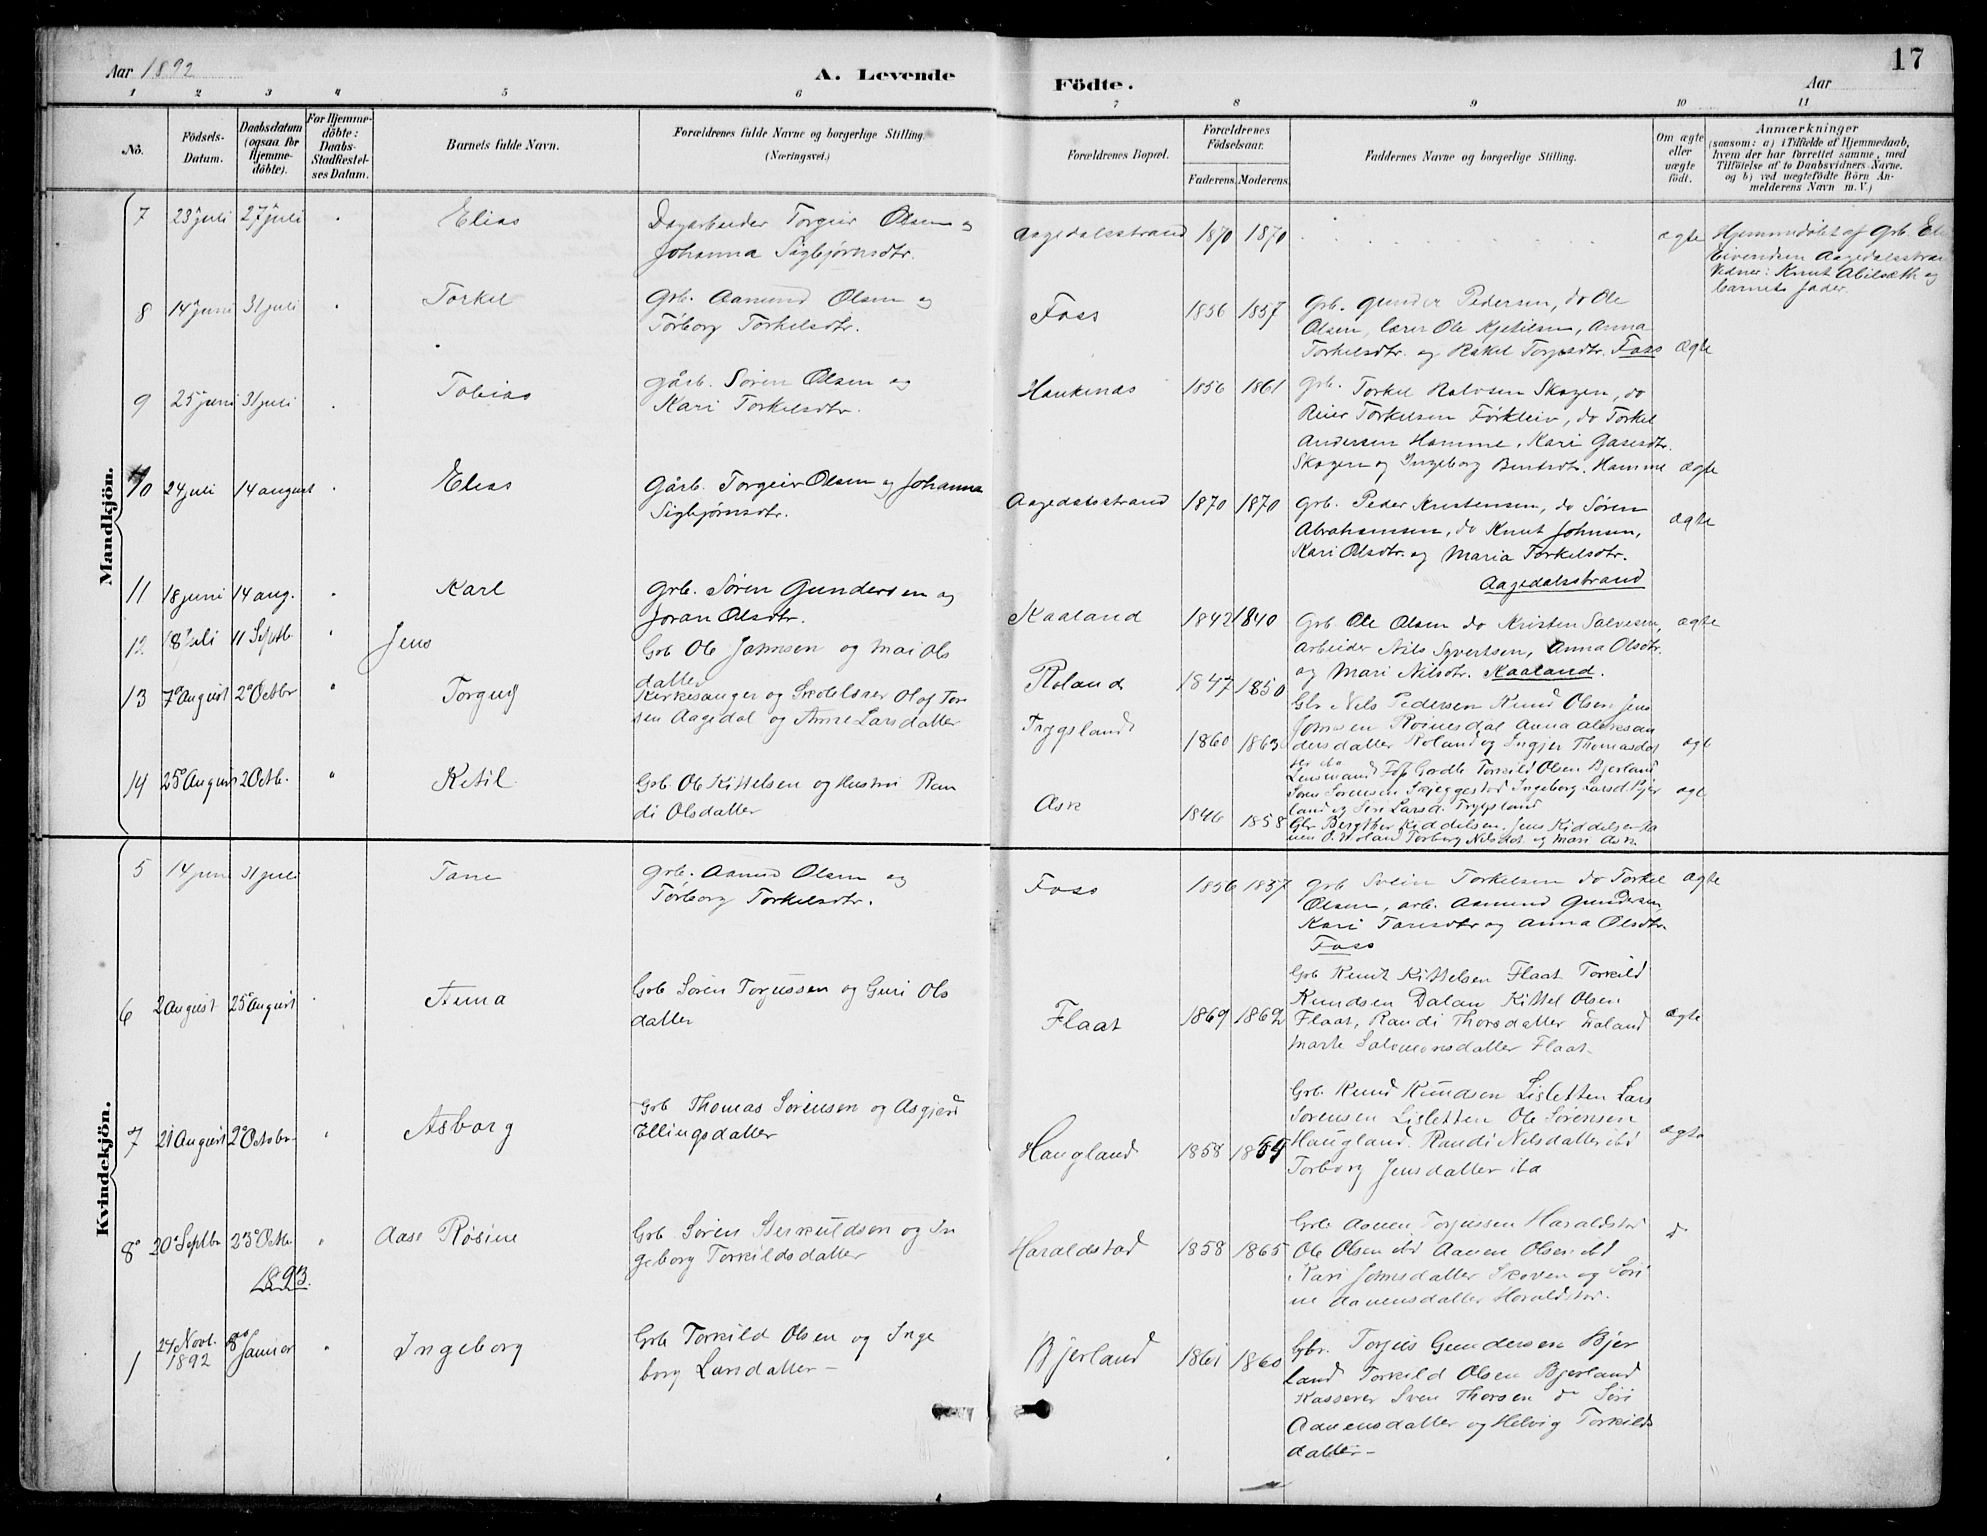 17
Aar 1892
A. Levende
Födte.
Aar
1 2 3 4 5 6 7 8 9 10 11
No.
Födsels-
Datum.
Daabsdatum
(ogsaa for
Hjemme-
döbte).
For Hjemme-
döbte:
Daabs-
Stadfæstel-
ses Datum.
Barnets fulde Navn.
Forældrenes fulde Navne og borgerlige Stilling
(Næringsvei.)
Forældrenes Bopæl.
Forældrenes
Födselsaar.
Faderens. Moderens.
Faddernes Navne og borgerlige Stilling.
Om ægte
eller
uægte
født.
Anmærkninger
(saasom: a) i Tilfælde af Hjemmedaab,
hvem der har forrettet samme, med
Tilföielse af to Daabsvidners Navne.
og b) ved uægtefödte Börn An-
melderens Navn m. V.)
Mandkjön.
7 23 juli 27 juli Elias Dagarbeider Torgeir Olsen og
Johanna Sigbjørnsdtr.
Aagedalsstrand 1870 1870 ægte
Hjemmedøbt af Grb.
Eivendsen Aagedalsstran
Vidner: Knut Abilsæth og
barnets fader.
8 14 juni 31 juli Torkel Grb. Aamund Olsen og
Tørborg Torkelsdtr.
Foss 1856 1857
Grb. Gunder Pedersen, do Ole
Olsen, lærer Ole Kjetilsen, Anna
Torkelsdtr. og Rakel Torjesdtr. Foss ægte
9 25 juni 31 juli Tobias gårb. Søren Olsen og
Kari Torkelsdtr.
Haukenas 1856 1861
Grb. Torkel Ralvsen Skagen, do
Reier Torkelsen Førkleiv, do Torkel
Andersen Homme, Kari Gasesdtr.
Skagen og Ingeborg Bentsdtr. Homme ægte
10 24 juli 14 august Elias Gårb. Torgeir Olsen og Johanna
Sigbjørnsdtr.
Aagedalsstrand 1870 1870
Grb. Peder Kristensen, do Søren
Abrahamsen, do Knut Johnsen,
Kari Olsdtr. og Maria Torkelsdtr.
Aagedalsstrand
ægte
11 18 juni 14 aug. Karl Grb. Søren Gundersen og
Joran Olsdtr.
Kaaland 1842 1840
Grb Ole Olsen do Kristen Salvesen,
arbeider Nils Syvertsen, Anna Olsdtr.
og Mari Nilsdtr. Kaaland.
ægte
12 18 Juli 11 Septb Jens Grb Ole Jahnsen og Mari Ols
datter
Roland 1847 1850
Gbr Nils Pedersen Knud Olsen Jens
Johnsen Roinesdal Anna Aleksan
dersdatter Roland og Ingjer Thomasdat
ter ibd
13 7de August 2 Octbr Torguf Kirkesanger og Skolelærer Olaf Tor
sen Aagedal og Anne Larsdatter
Trygsland 1860 1863 ægt
Lensmand Fos Gordle Torkild Olsen Bjerland
Søren Sørensen Skjeggestad Ingeborg Larsd Bjer
land og Siri Larsd. Trygsland
14 25 August 2 Octb. Ketil Grb. Ole Kittelsen og Hustru Ran
di Olsdatter
Ask 1846 1858 ægt
Gbr Bergthor Kiddelsen. Jens Kiddelsen
Torborg Nilsdat og Mari Ask.
Kvindekjön.
5 14 juni 31 juli Tone Grb. Aamund Olsen og
Tørborg Torkelsdtr.
Foss 1856 1857
Grb Svein Torkelsen do Torkel
Olsen, arb. Aamund Gundersen,
Kari Taresdtr og Anna Olsdtr.
Foss
ægte
6 2 August 25 August Anna Grb Søren Torjussen og Guri Ols
datter
Flaat 1869 1862
Grb Knut Kittelsen Flaat Torkild
Knudsen Dalan Kittel Olsen
Flaat, Randi Thorsdatter Faland
Marte Salomonsdatter Flaat
ægte
7 21 August 2 Octobr Asborg Grb Thomas Sørensen og Asgjerd
Ellingsdatter
Haugland 1858
Grb. Knud Knudsen Lisletten Lars
Sørensen Lisletten Ole Sørensen
Haugland. Randi Nilsdatter ibd
Torborg Jensdatter ibd
ægte
8 20 Septbr 23 Octb. Aase Rosine Grb Søren Sterkuldsen og In
geborg Torkildsdatter
Haraldstad 1858 1865
Grb Aanen Torjussen Haraldstad
Ole Olsen ibd Aanen Olsen ibd
Kari Johnsdatter Skoven og Siri
ne Aanensdatter Haraldstad.
d
1893.
1 24 Novl. 1892 8de Januar Ingeborg Grb Torkild Olsen og Inge
borg Larsdatter -
Bjerland 1861 1860
Gbr. Torjus Gundersen Bjer
land Torkild Olsen Bjerland
Kasserer Sven Thorsen do Siri
Aanensdatter og Helvig Torkilds
datter -